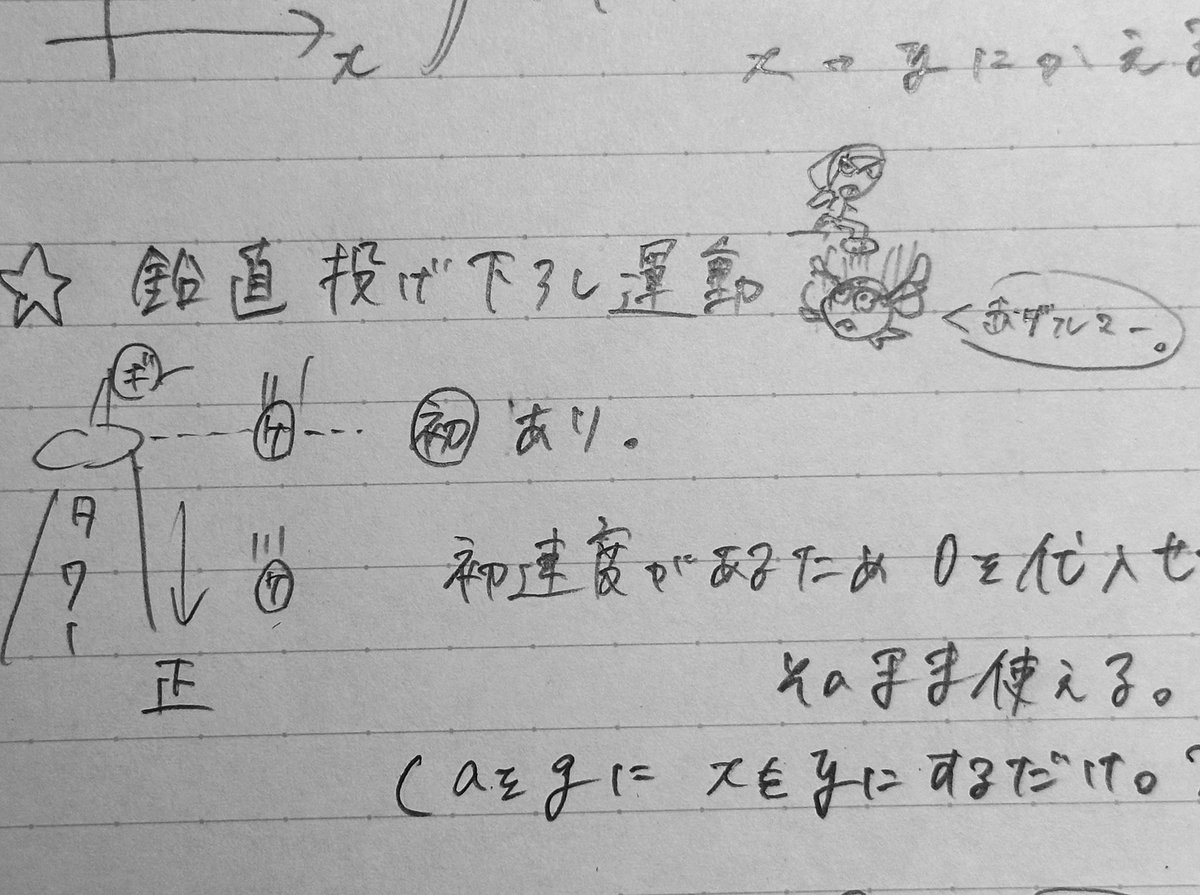 x
x → yにかえる
☆ 鉛直投げ下ろし運動
ギ
ケ
初 あり。
タワー
ケ
初速度があるため 0を代入せ
正
そのまま使える。
(aをgに xをyにするだけ。)